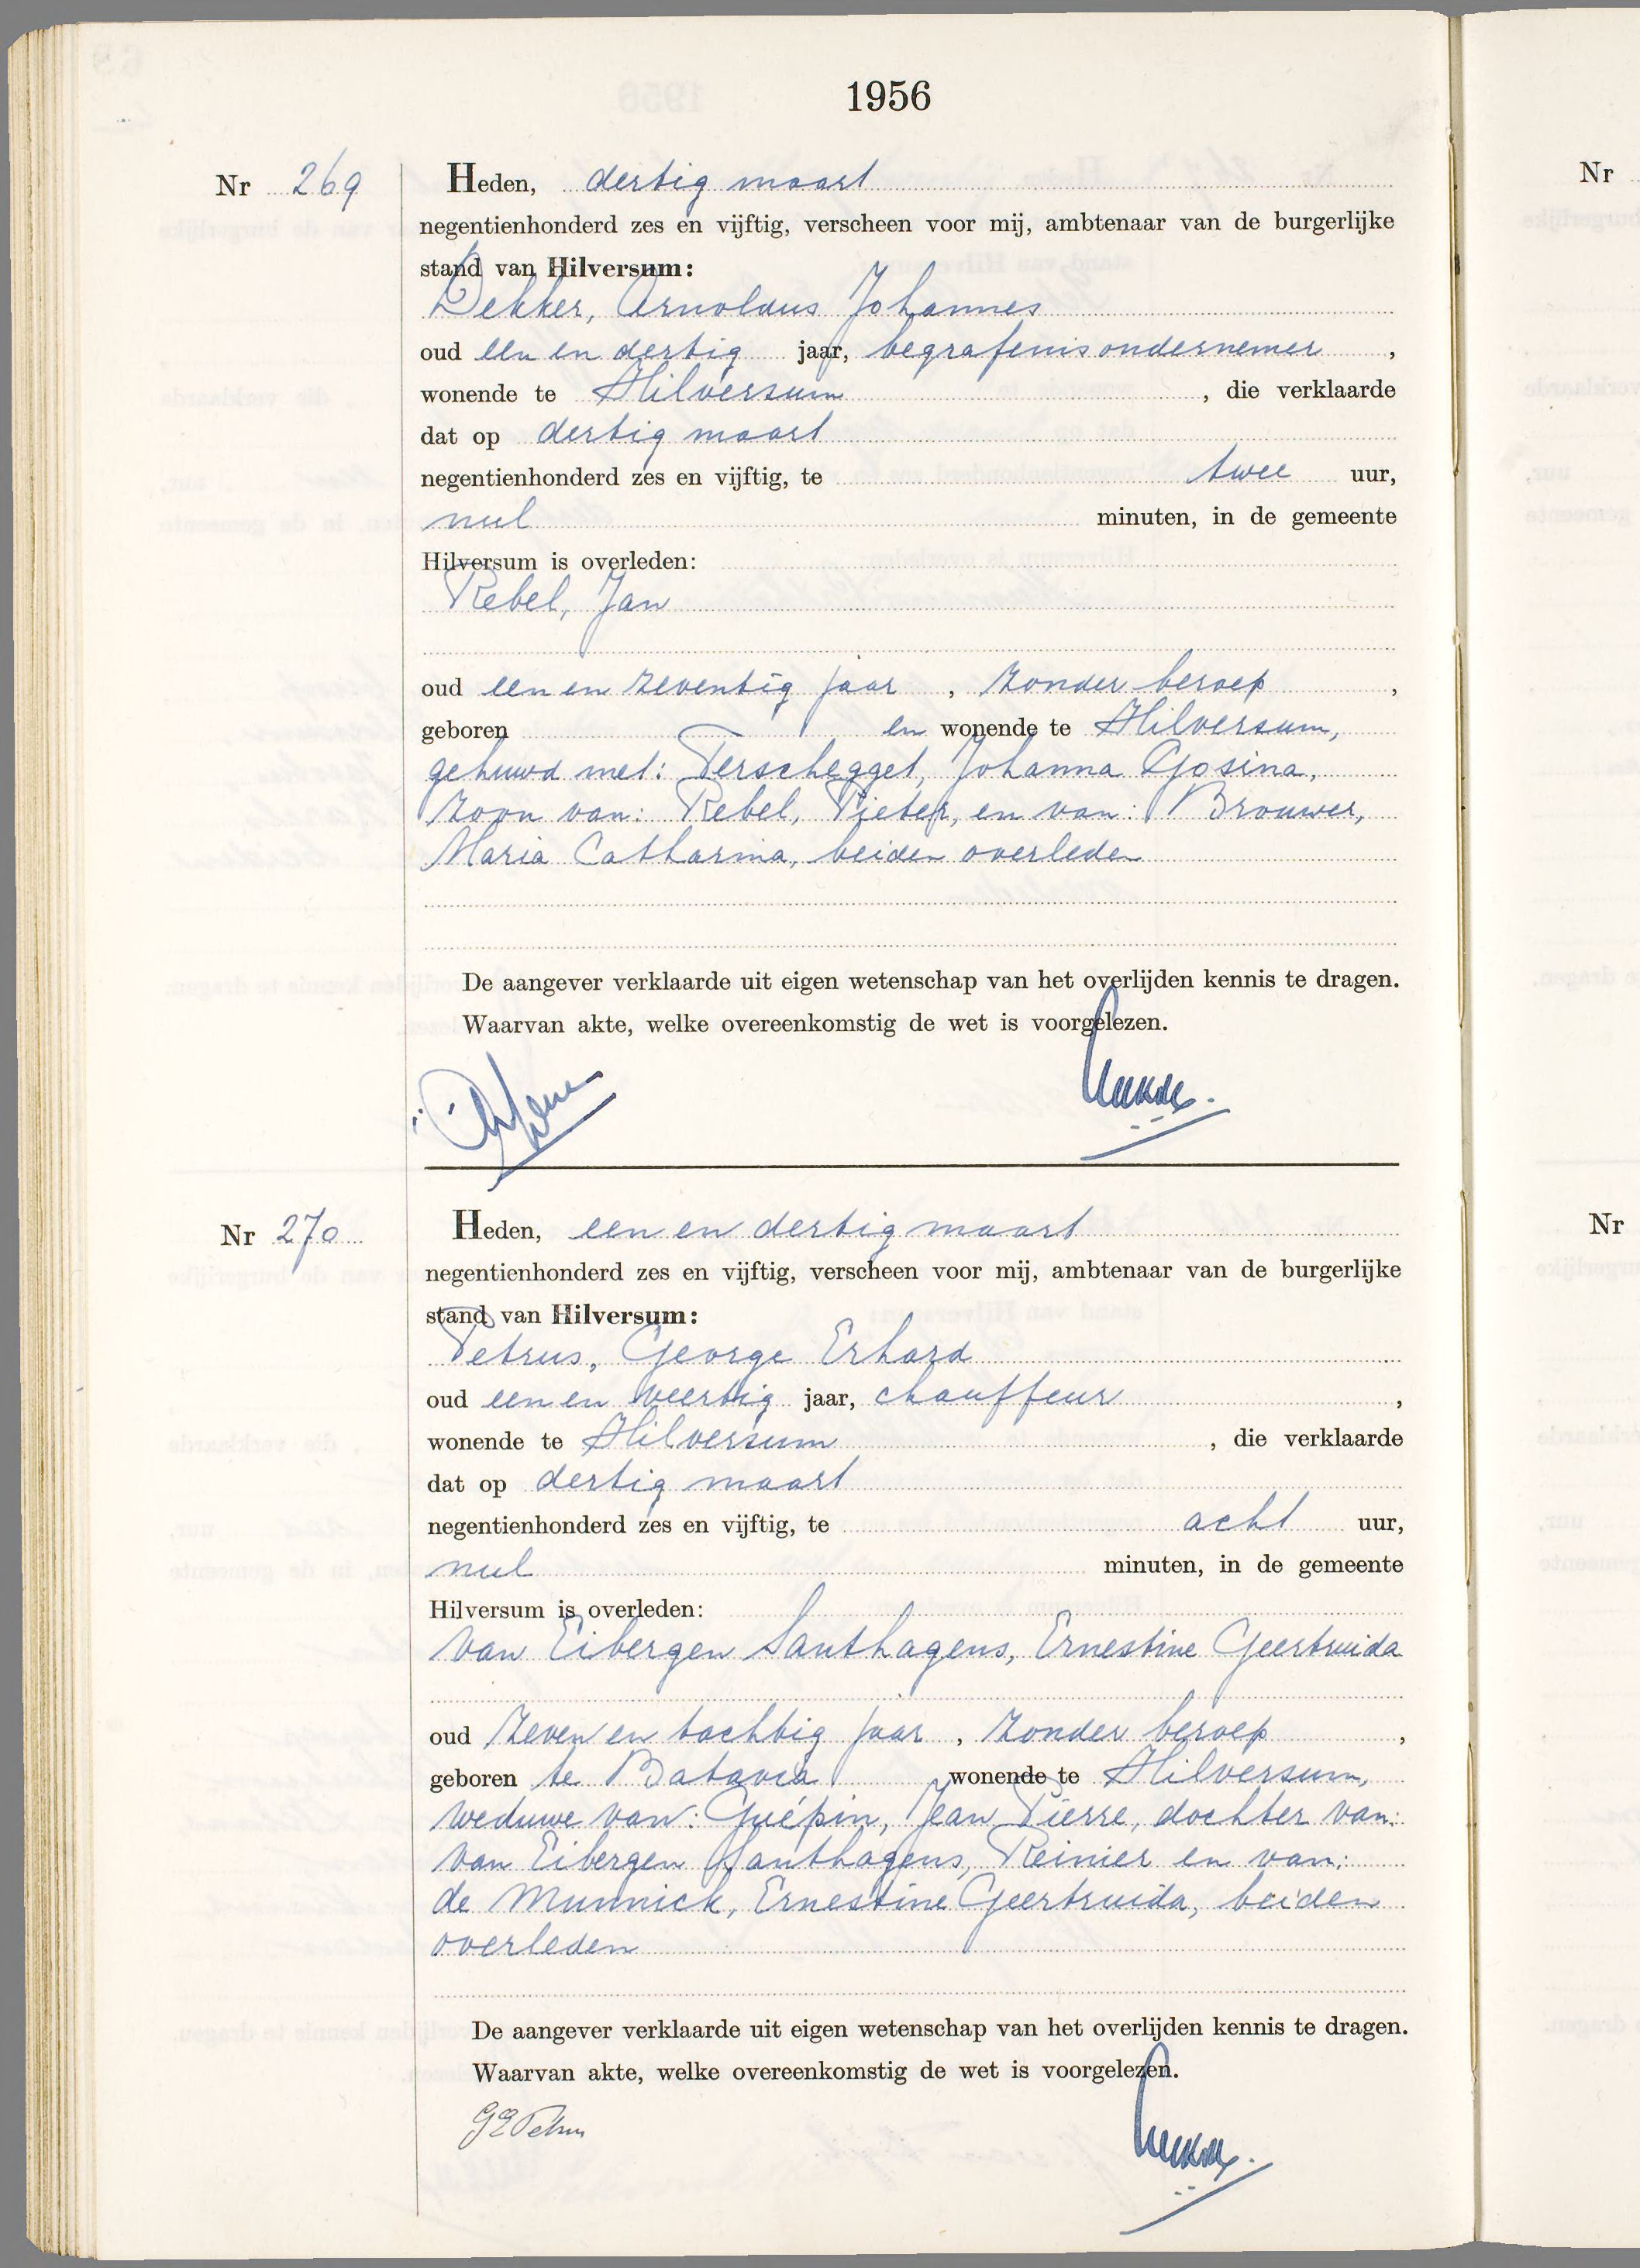 1956
Nr 269
Heden, dertig maart
negentienhonderd zes en vijftig, verscheen voor mij, ambtenaar van de burgerlijke
stand van Hilversum:
Dekker, Arnoldus Johannes
oud een en dertig jaar, begrafenisondernemer,
wonende te Hilversum, die verklaarde
dat op dertig maart
negentienhonderd zes en vijftig, te twee uur,
nul minuten, in de gemeente
Hilversum is overleden:
Rebel, Jan
oud een en zeventig jaar, zonder beroep,
geboren en wonende te Hilversum,
gehuwd met: Terschegget, Johanna Gosina,
zoon van: Rebel, Pieter, en van: Brouwer,
Maria Catharina, beiden overleden
De aangever verklaarde uit eigen wetenschap van het overlijden kennis te dragen.
Waarvan akte, welke overeenkomstig de wet is voorgelezen.
Nr 270
Heden, een en dertig maart
negentienhonderd zes en vijftig, verscheen voor mij, ambtenaar van de burgerlijke
stand van Hilversum:
Petrus, George Erhard
oud een en veertig jaar, chauffeur,
wonende te Hilversum, die verklaarde
dat op dertig maart
negentienhonderd zes en vijftig, te acht uur,
nul minuten, in de gemeente
Hilversum is overleden:
van Eibergen Santhagens, Ernestine Geertruida
oud zeven en tachtig jaar, zonder beroep,
geboren te Batavia wonende te Hilversum,
weduwe van: Guépin, Jean Pierre, dochter van:
van Eibergen Santhagens, Reinier en van:
de Munnick, Ernestine Geertruida, beiden
overleden
De aangever verklaarde uit eigen wetenschap van het overlijden kennis te dragen.
Waarvan akte, welke overeenkomstig de wet is voorgelezen.
GEPetrus
Nr
Nr